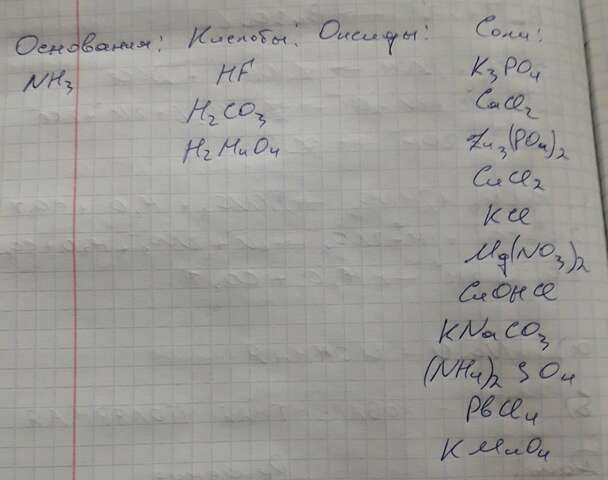 Основания: Кислоты: Оксиды: Соли:
NH₃ HF K₃PO₄
H₂CO₃ CaCl₂
H₂MnO₄ Zn₃(PO₄)₂
CuCl₂
KCl
Mg(NO₃)₂
CuOHCl
KNaCO₃
(NH₄)₂SO₄
PbCl₄
KMnO₄